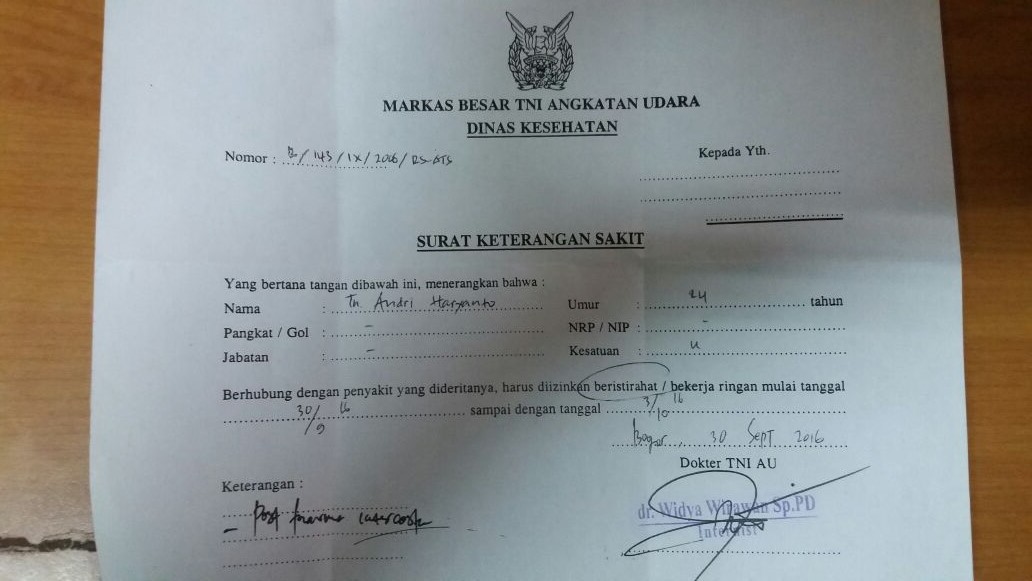 MARKAS BESAR TNI ANGKATAN UDARA
DINAS KESEHATAN
Nomor : B/143/IX/2016/RS-ATS
Kepada Yth.
SURAT KETERANGAN SAKIT
Yang bertana tangan dibawah ini, menerangkan bahwa :
Nama : Tn. Andri Haryanto Umur : 24 tahun
Pangkat / Gol : - NRP / NIP : -
Jabatan : - Kesatuan :
Berhubung dengan penyakit yang dideritanya, harus diizinkan beristirahat / bekerja ringan mulai tanggal
30/9 16 sampai dengan tanggal 3/10 16
Bogor, 30 Sept 2016
Dokter TNI AU
Keterangan :
dr. Widya Wirawan Sp.PD
- Post trauma
Internist